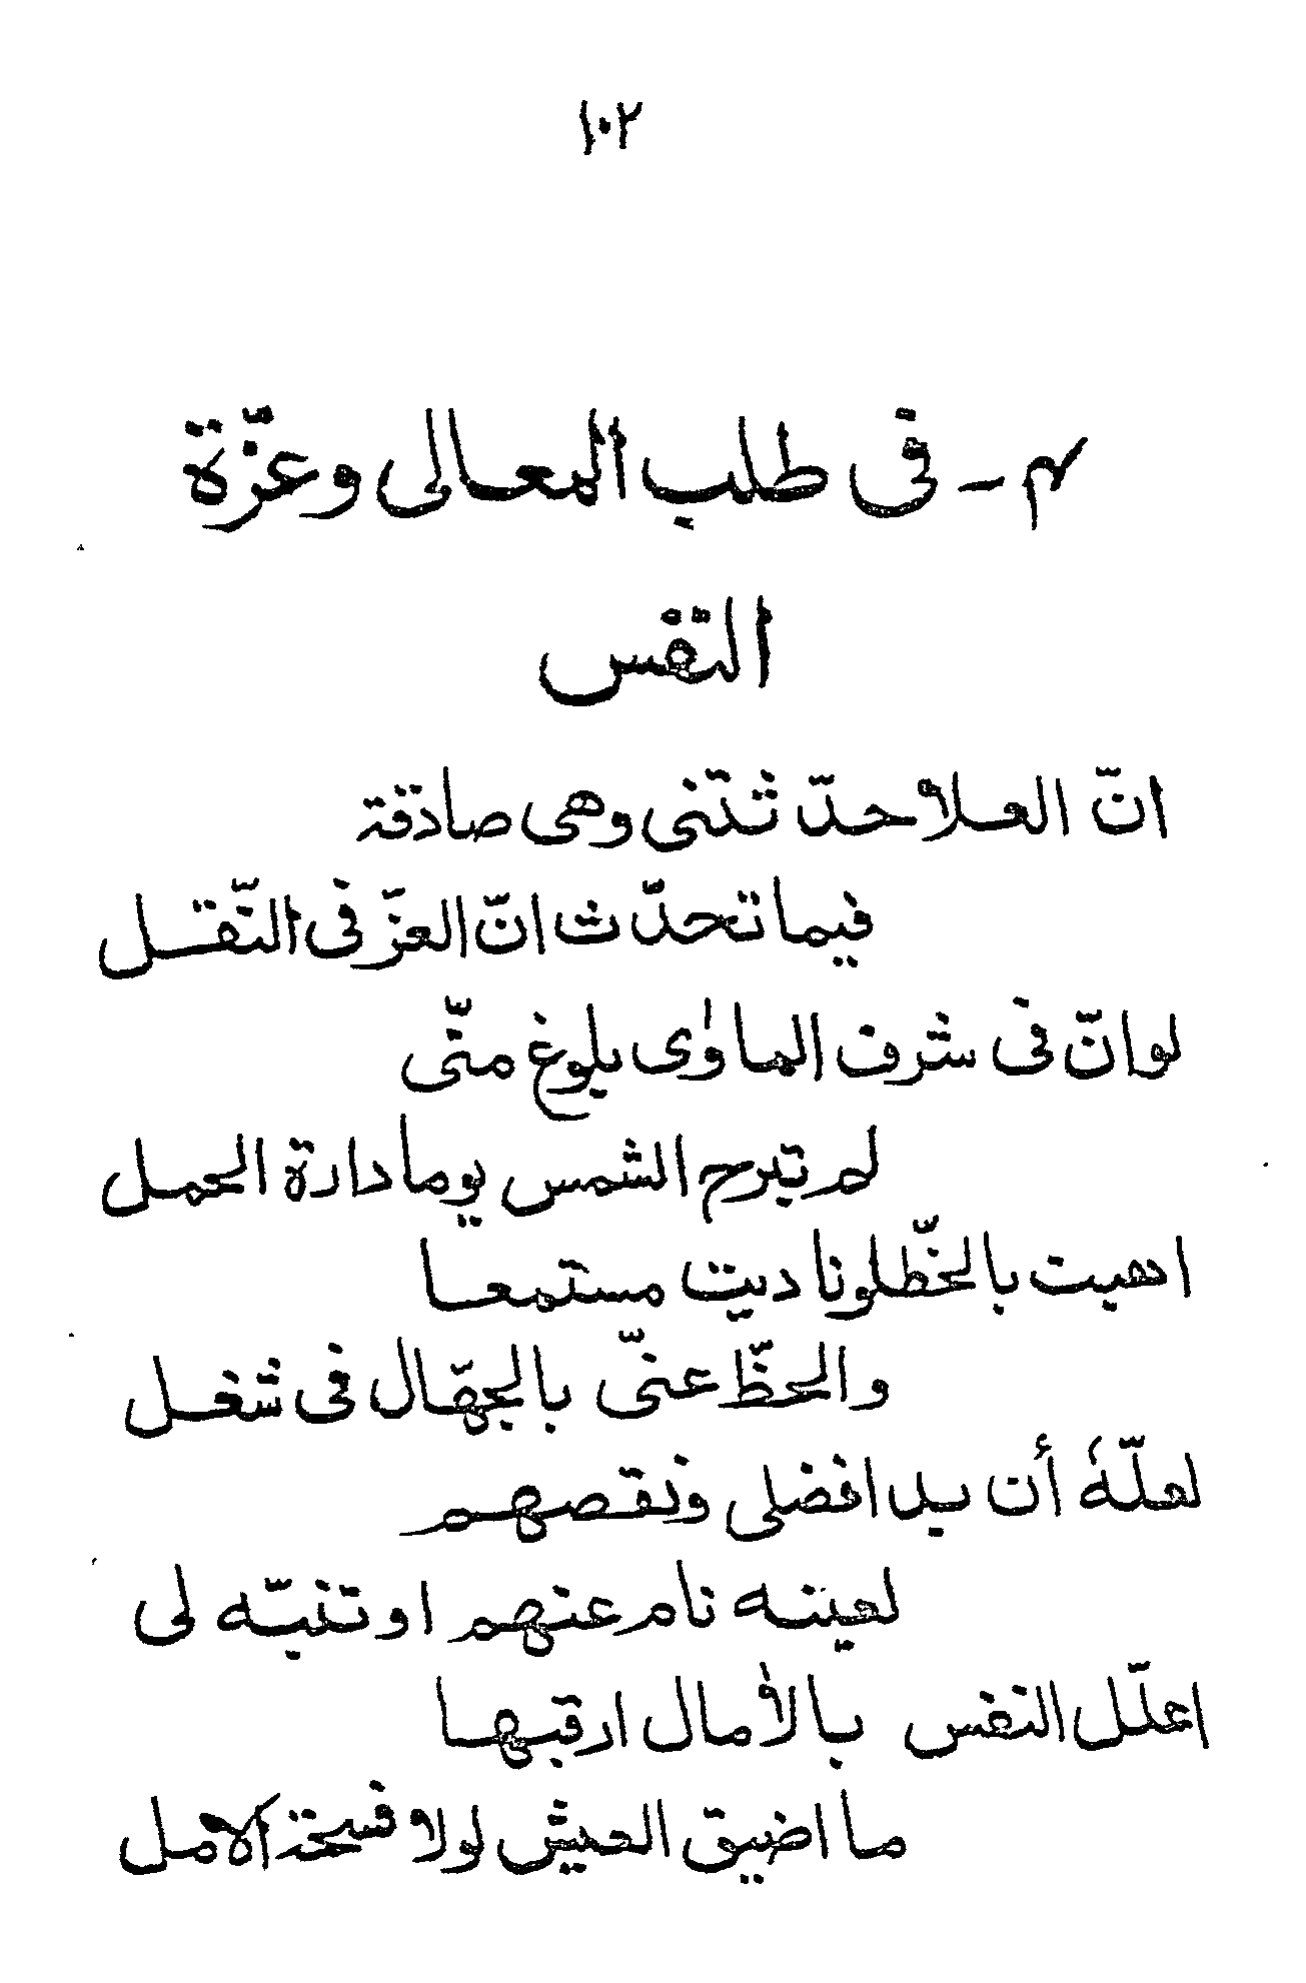 ١٠٢
٤ ـ فى طلب المعالى وعزّة
النفس
انّ العلا حدّثتنى وهى صادقة
فيما تحدّث انّ العزّ فى النّقل
لو انّ فى شرف الماوٰى بلوغ منّى
لم تبرح الشمس يوما دارة الحمل
اهبت بالخّط لو ناديت مستمعا
والحظّ عنّى بالجهّال فى شغل
لعلّهٗ أن بدا فضلى ونقصهم
لعينه نام عنهم او تنبّه لى
اعلّل النفس بالاٰمال ارقبها
ما اضيق العيش لولا فسحة الامل